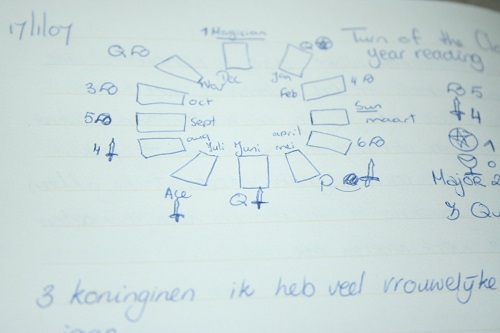 17/1/07
1 Magician
Turn of the
year reading
Q
Q
Nov
Dec
Jan
3
oct
Feb
4
5
sept
Sun
maart
5
4
4
aug
Juli
Juni
april
mei
6
1
0
Ace
Q
P
Major 2
Qu
3 koninginen ik heb veel vrouwelijke